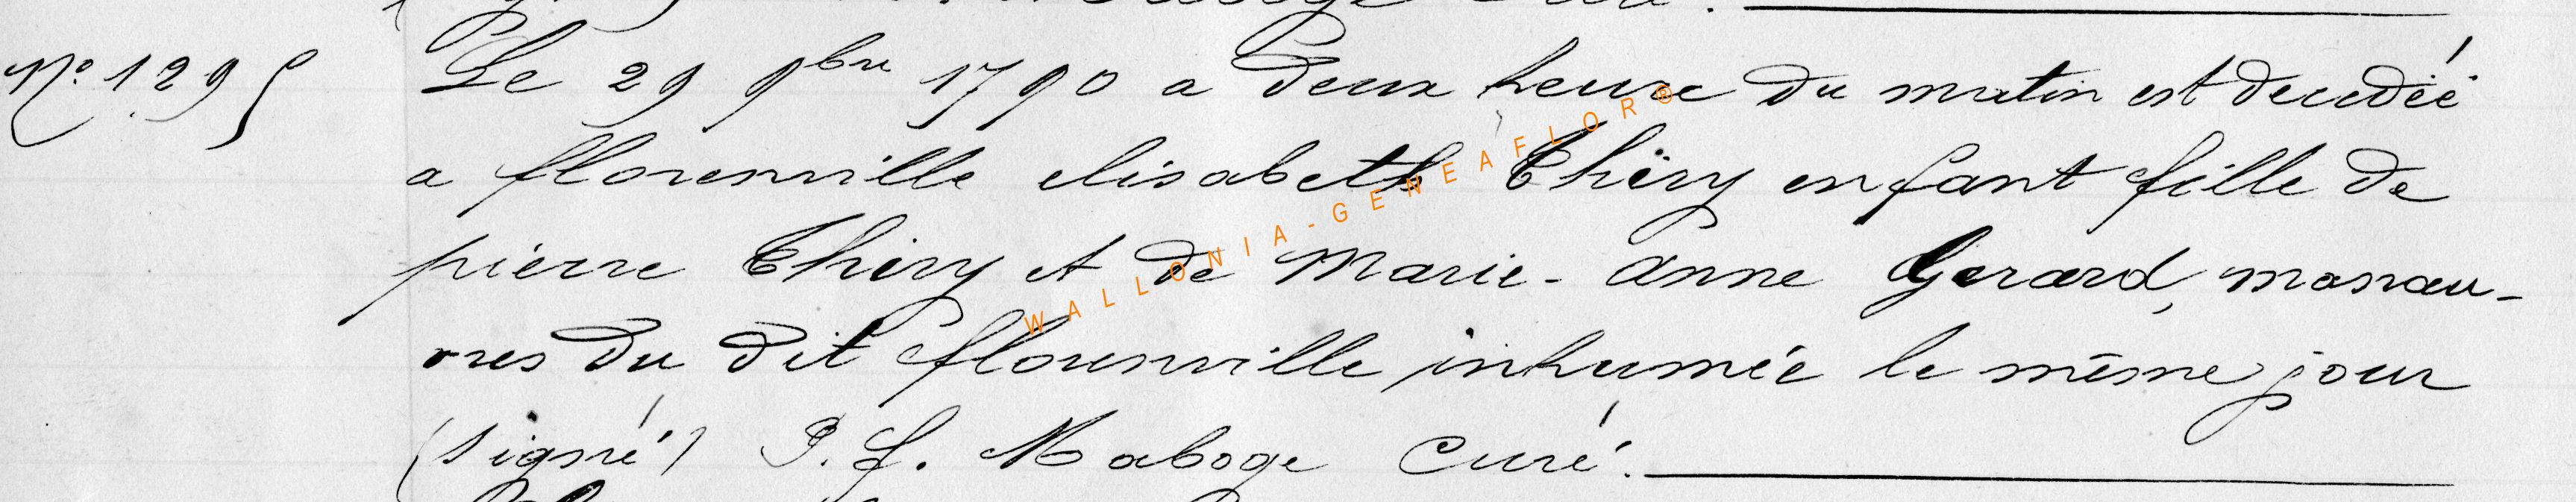 No. 1295 Le 29 9bre 1790 a deux heure du matin est decedéé
a florenville elisabeth Thiry enfant fille de
pierre Thiry et de Marie-anne Gerard, manœu-
vres du dit florenville inhumée le même jour
(signé) P. f. Maboge Curé.
WALLONIA-GENEAFLOR®